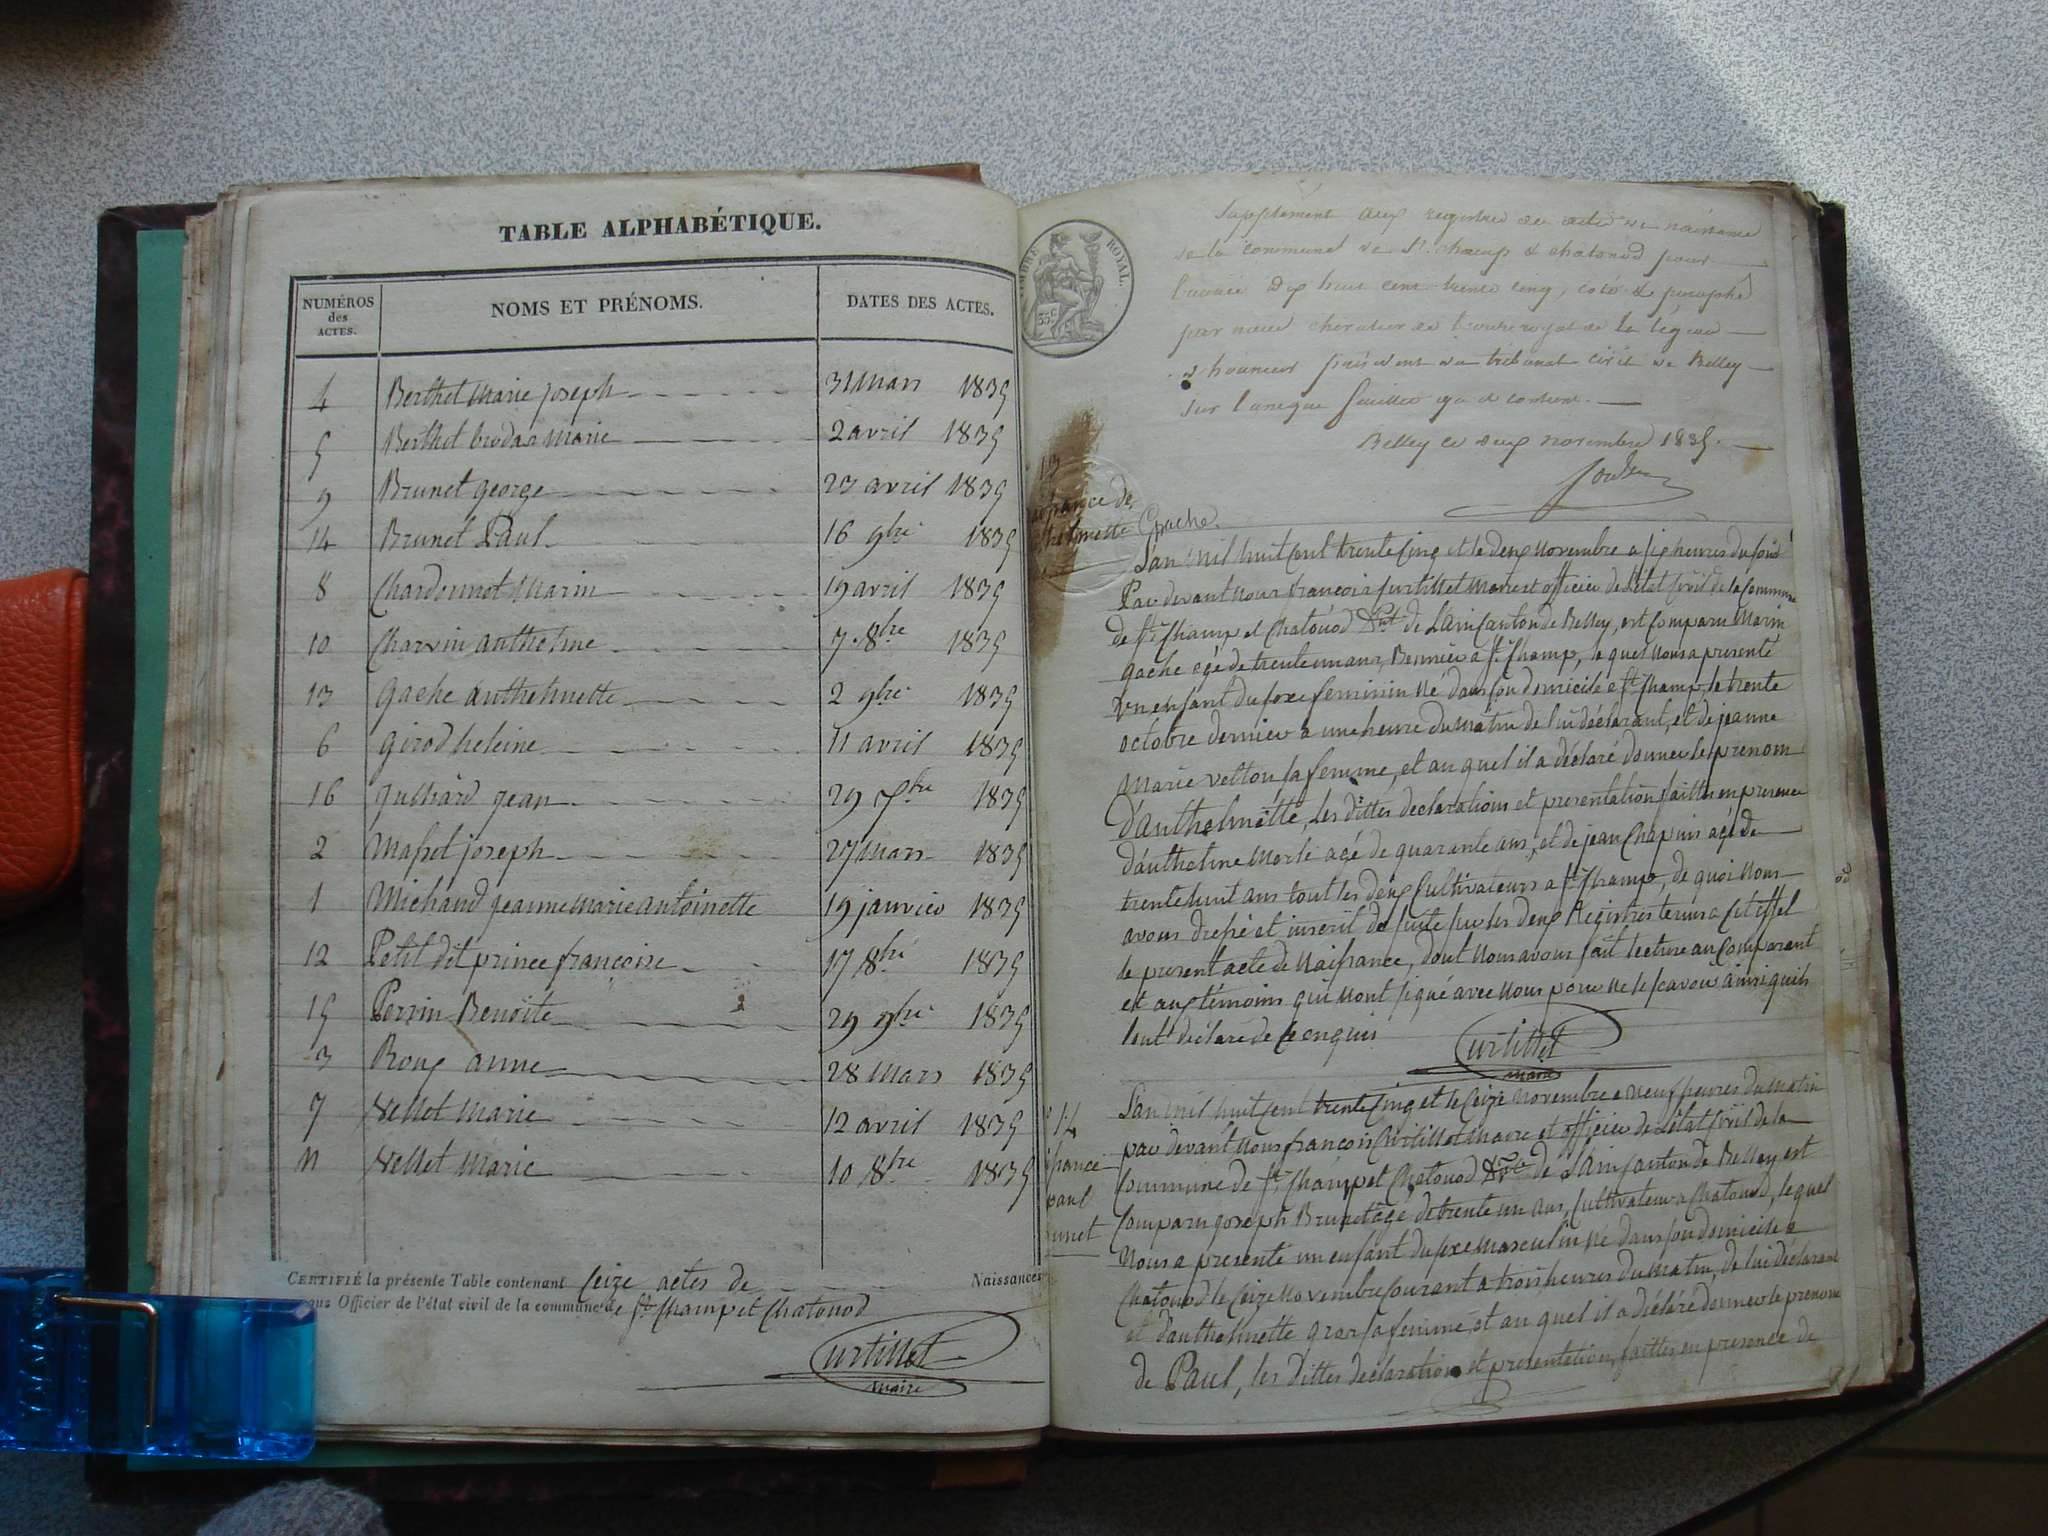 TABLE ALPHABÉTIQUE.
NUMÉROS des ACTES. NOMS ET PRÉNOMS. DATES DES ACTES.
4 Berthet Marie joseph 31 Mars 1835
5 Berthet Marie 2 avril 1835
9 Brunet george 23 avril 1835
14 Brunet Paul 16 9bre 1835
8 Chardonnot Marin 19 avril 1835
10 Charvin anthelme 7 8bre 1835
13 gache anthelmette 2 9bre 1835
6 girod heleine 11 avril 1835
16 jullliard jean 29 1835
2 Massot joseph 27 Mars 1835
1 Michaud jeanne Marie antoinette 19 janvier 1835
12 Petit dit prince françoise 17 8bre 1835
15 Perrin Benoite 29 9bre 1835
3 Roux anne 28 Mars 1835
7 Vellet Marie 12 avril 1835
11 Vellet Marie 10 8bre 1835
CERTIFIÉ la présente Table contenant seize actes de Naissances
Officier de l'état civil de la commune de St Champ et Chatonod
Curtillet
maire
TIMBRE ROYAL.
35 c
Supplement aux registres des actes de naissance
de la commune de St. champ & chatonod pour
l'année dix huit cent trente cinq, coté & paraphé
par nous chevalier de l'ordre royal de la légion
d'honneur président du tribunal civil de Belley
sur l'unique feuillet qu'il contient.
Belley le deux novembre 1835.
13
naissance de
anthelmette Gache.
L'an mil huit cent trente cinq et le deux novembre a six heures du soir
Par devant nous françois Curtillet Maire et officier de l'état civil de la Commune
de St Champ et Chatonod Dpt de L'ain Canton de Belley, est Comparu Marin
gache agé de trente un ans, a St Champ, lequel nous a presenté
un enfant du sexe feminin né dans son domicile a St Champ le trente
octobre dernier a une heure du matin de lui déclarant, et de jeanne
Marie vetton sa femme, et au quel il a déclaré donner le prenom
d'anthelmette, les dittes declarations et presentation faittes en presence
d'anthelme Morlé agé de quarante ans, et de jean Chapuis agé de
trente huit ans tout les deux Cultivateurs a St Champ, de quoi nous
avons dressé et inscrit de suite sur les deux Registres tenus a cet effet
le present acte de Naissance, dont nous avons fait lecture au Comparant
et aux témoins qui n'ont signé avec nous pour ne le scavoir ainsi quils
l'ont déclaré de ce enquis
Curtillet
maire
14
paul
L'an mil huit cent trente cinq et le seize novembre a neuf heures du matin
par devant nous françois Curtillet Maire et officier de l'état civil de la
Commune de St Champ et Chatonod Dpt de L'ain Canton de Belley est
Comparu joseph Brunet agé de trente un ans, Cultivateur a Chatonod, lequel
nous a presenté un enfant du sexe masculin né dans son domicile a
Chatonod le seize novembre courant a trois heures du matin, de lui déclarant
et d'anthelmette sa femme, et au quel il a déclaré donner le prenom
de Paul, les dittes declaration et presentation faittes en presence de